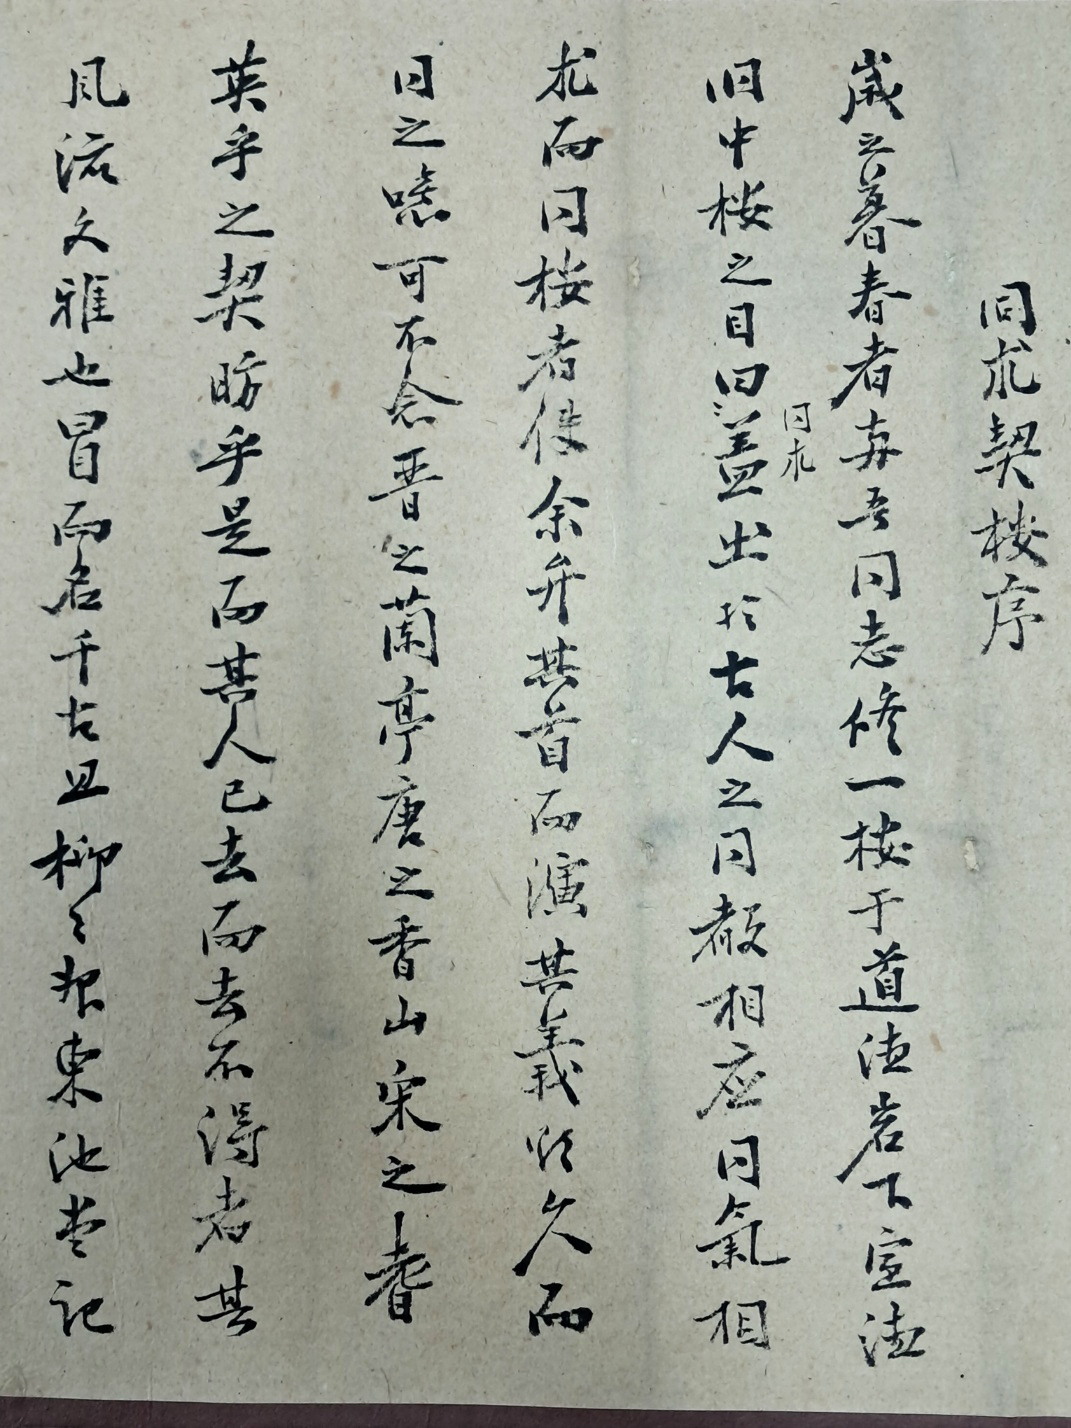 同求契楼序
歳之暮春者与吾同志修一楼于道法岩下室法
旧中楼之目曰盖出於古人之同声相応同氣相
同求
求而同楼者使余弁其首而演其義噫久而
日之噫可不念晋之蘭亭唐之香山宋之耆
英乎之契昉乎是而其人已去而去不得者其
風流文雅也冒而名千古且柳々報東池堂記